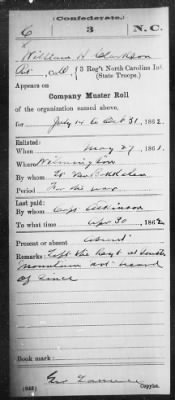 (Confederate.)
C 3 N.C.
William H. Clarkson
Co. , 3 Reg't North Carolina Inf.
(State Troops.)
Appears on
Company Muster Roll
of the organization named above,
for July 14 to Oct 31, 1862.
Enlisted:
When May 27, 1861.
Where Wilmington
By whom
Period For the war
Last paid:
By whom Capt
To what time Apr 30, 1862
Present or absent absent
Remarks: Left the Regt at South
Mountain not heard
of since
Book mark:
Copyist.